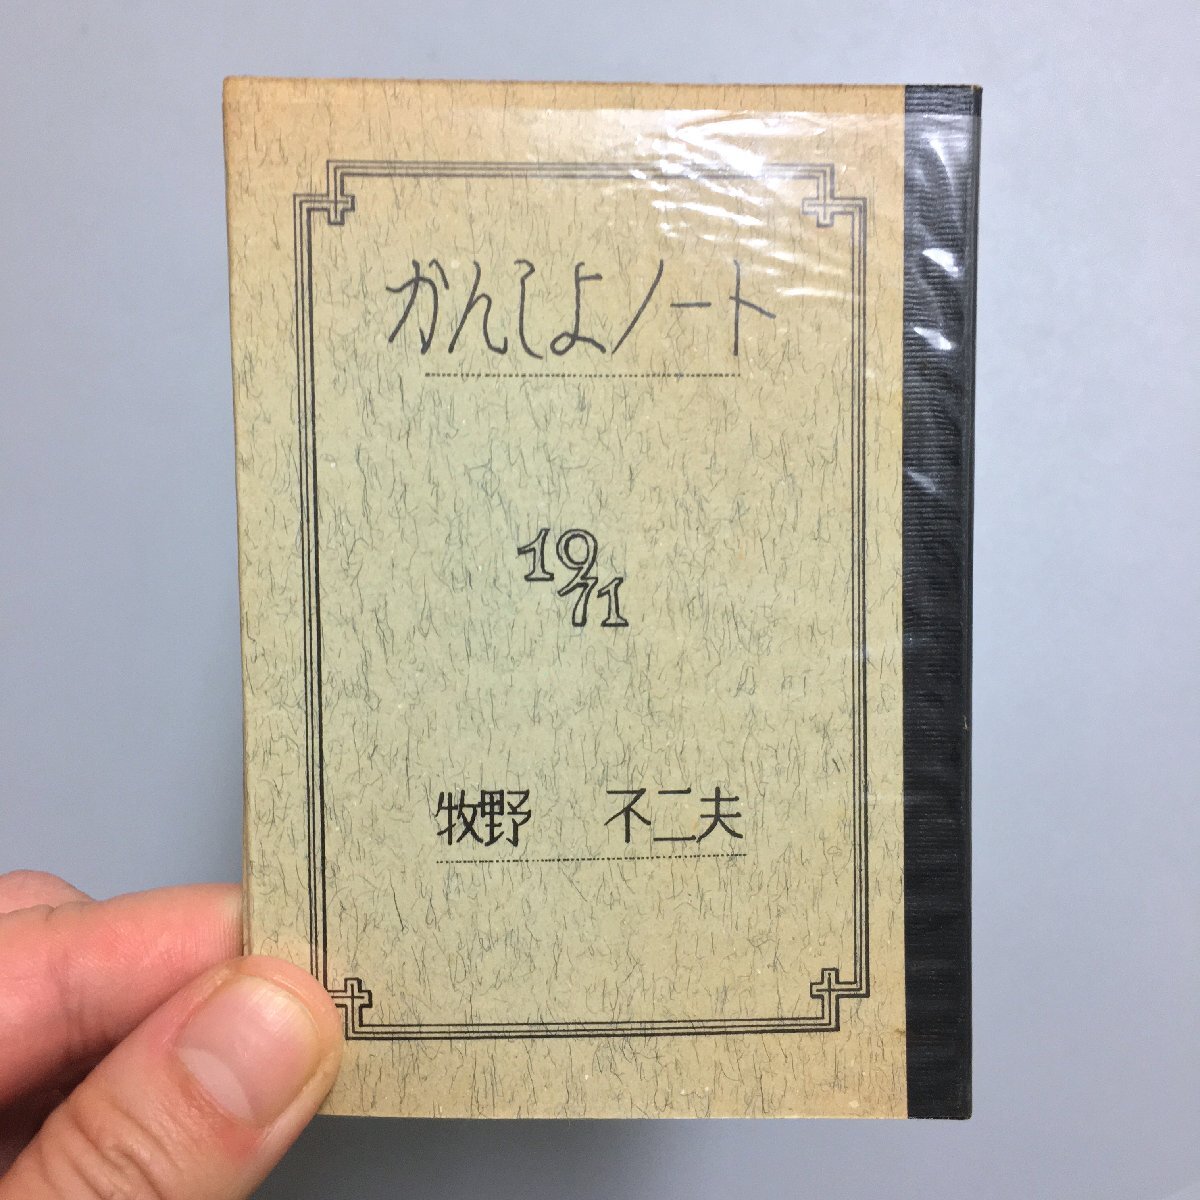 かんしよノート
19
71
牧野 不二夫